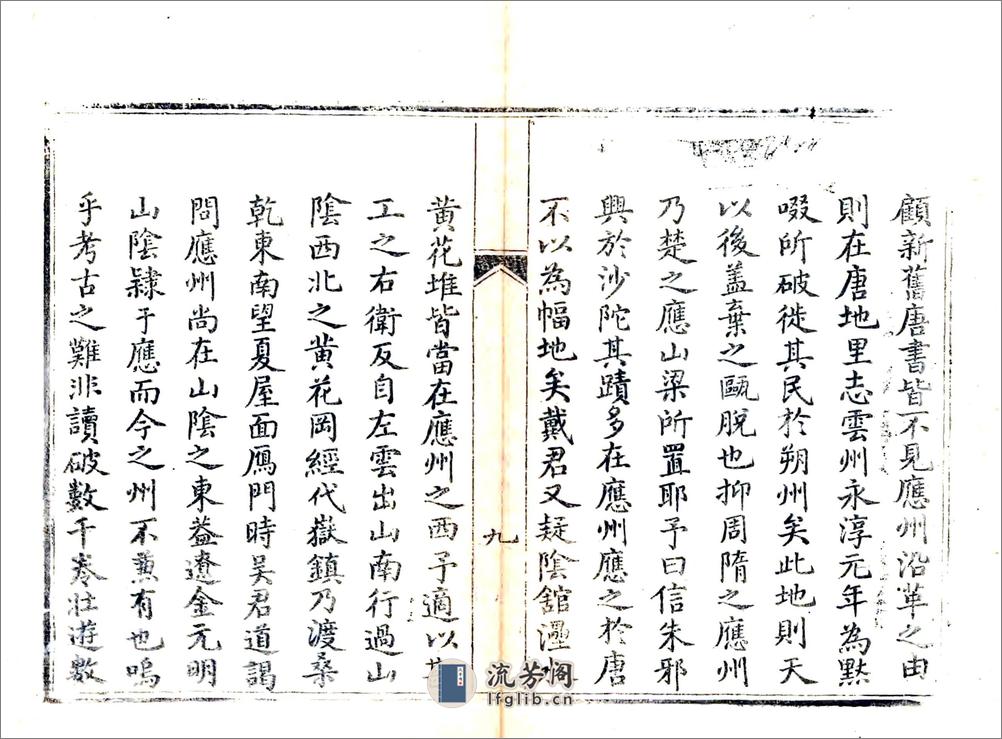 顧新舊唐書皆不見應州沿革之由
則在唐地里志雲州永淳元年為黙
啜所破徙其民於朔州矣此地則天
以後葢棄之甌脱也抑周隋之應州
乃楚之應山梁所置耶予曰信朱邪
興於沙陀其蹟多在應州應之於唐
不以為幅地矣戴君又疑陰舘㶟
九
黄花堆皆當在應州之西予適以
工之右衛反自左雲出山南行過山
隂西北之黄花岡經代嶽鎮乃渡桑
乾東南望夏屋面鴈門時吴君道謁
問應州尚在山隂之東葢遼金元明
山隂隸于應而今之州不兼有也嗚
乎考古之難非讀破數千卷壯遊數
流芳阁
lfglib.cn